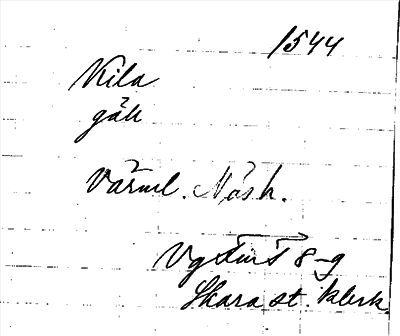 1544
Kila
gäll
Värml. Näsh.
Vg 8-9
Skara st. klerk.